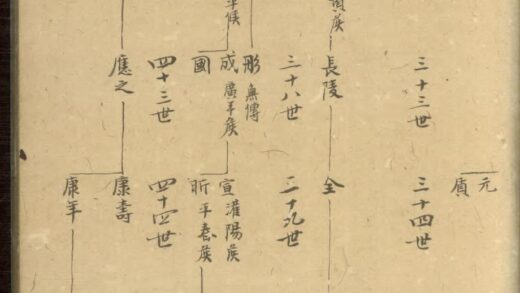 侯
三十三世
長陵
三十八世
彤 無傳
成 廣平侯
國
四十三世
應之
元
三十四世
全
宣 灌陽侯
昕 平春侯
四十四世
康壽
康年